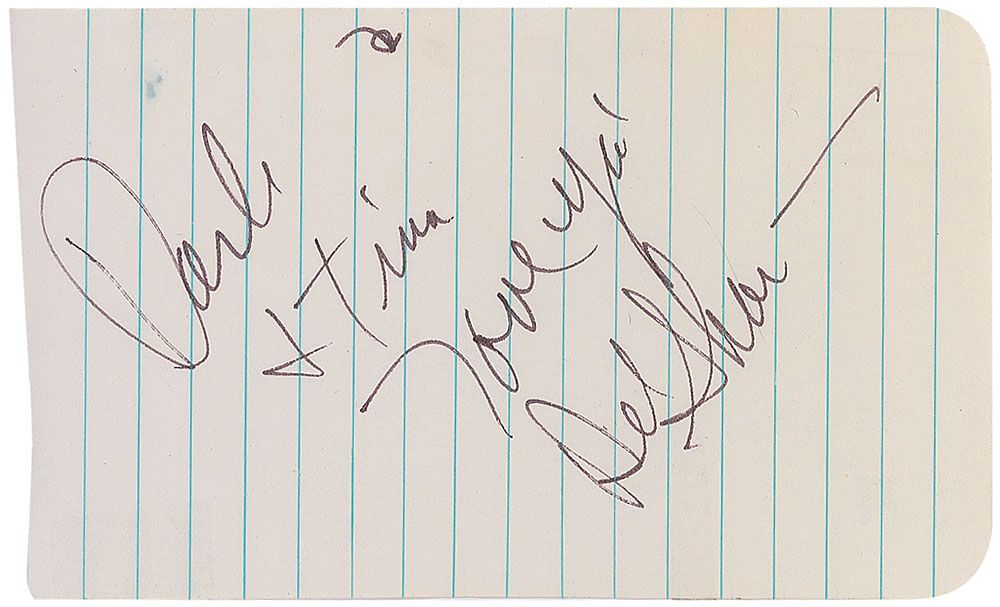 & Tina
Love Ya!
Del Shannon